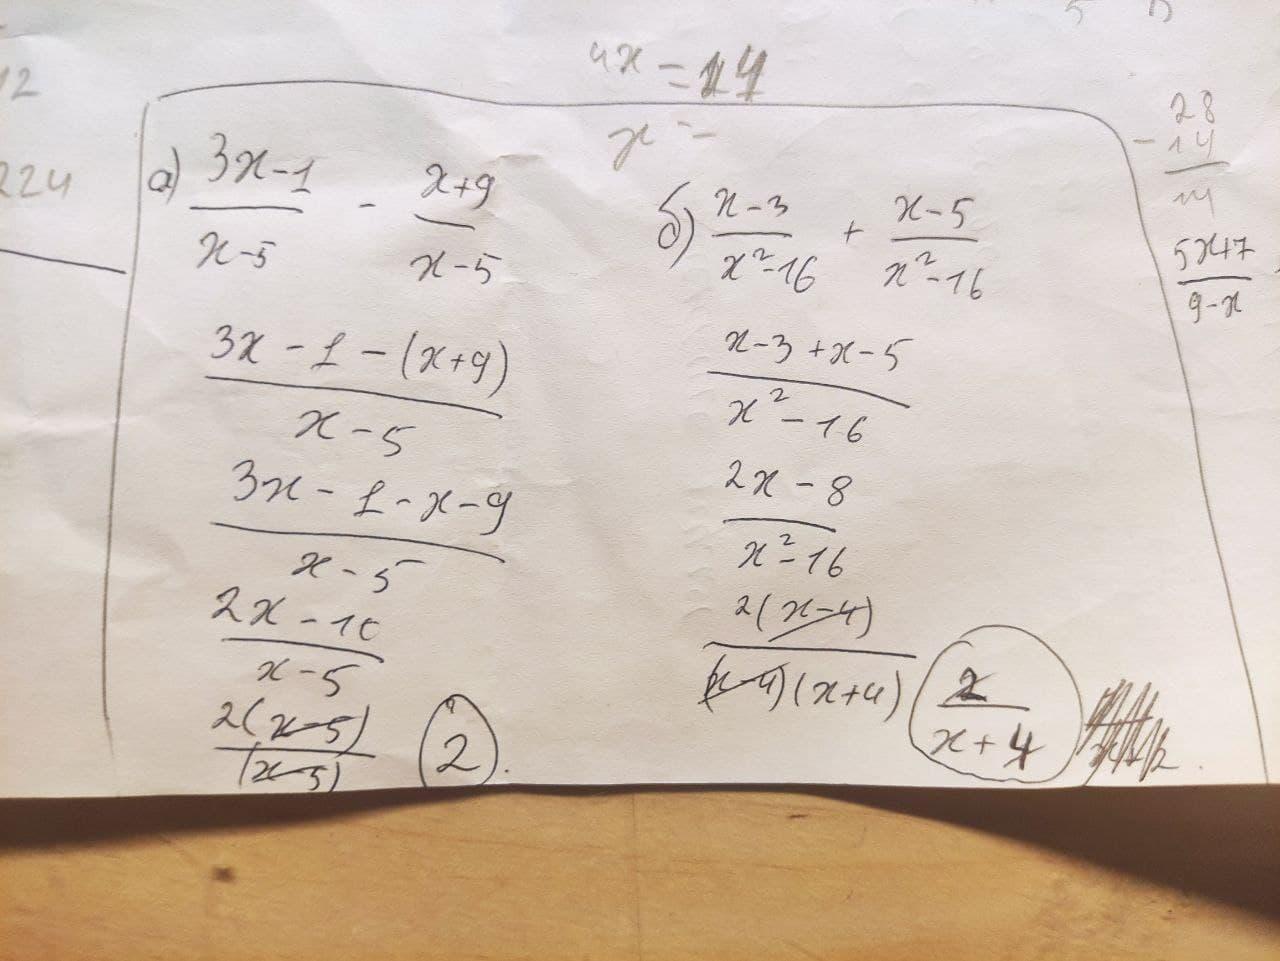 4x = 14
x =
12
224
28
- 14
14
5x+7
9-x
а) 3x-1 / x-5 - x+9 / x-5
3x - 1 - (x+9) / x - 5
3x - 1 - x - 9 / x - 5
2x - 10 / x - 5
2(x-5) / (x-5) 2.
б) x-3 / x²-16 + x-5 / x²-16
x-3+x-5 / x²-16
2x - 8 / x²-16
2(x-4) / (x-4)(x+4) 2 / x+4